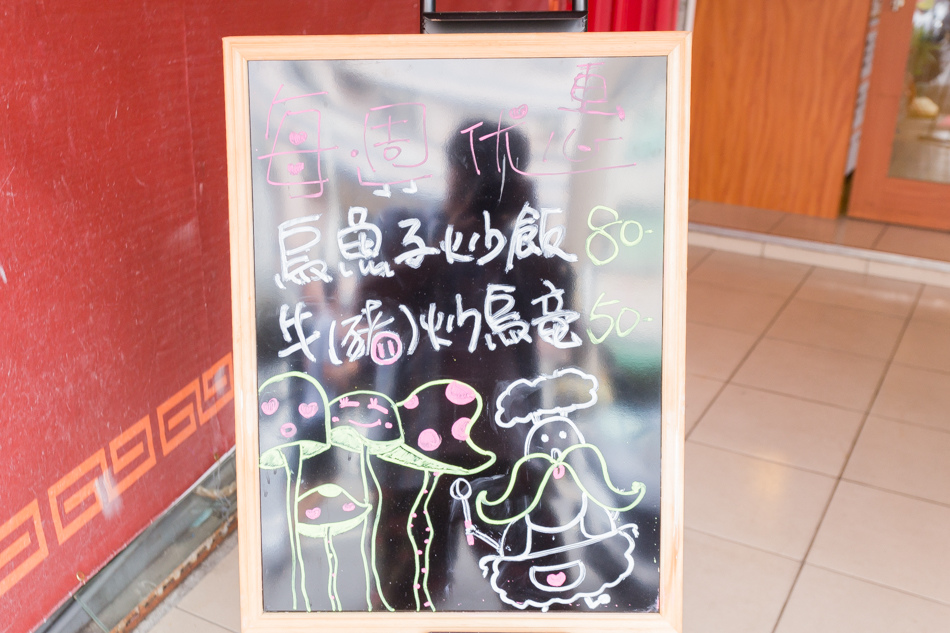 每週优惠
烏魚子炒飯 80.
牛(豬)炒烏竜 50.